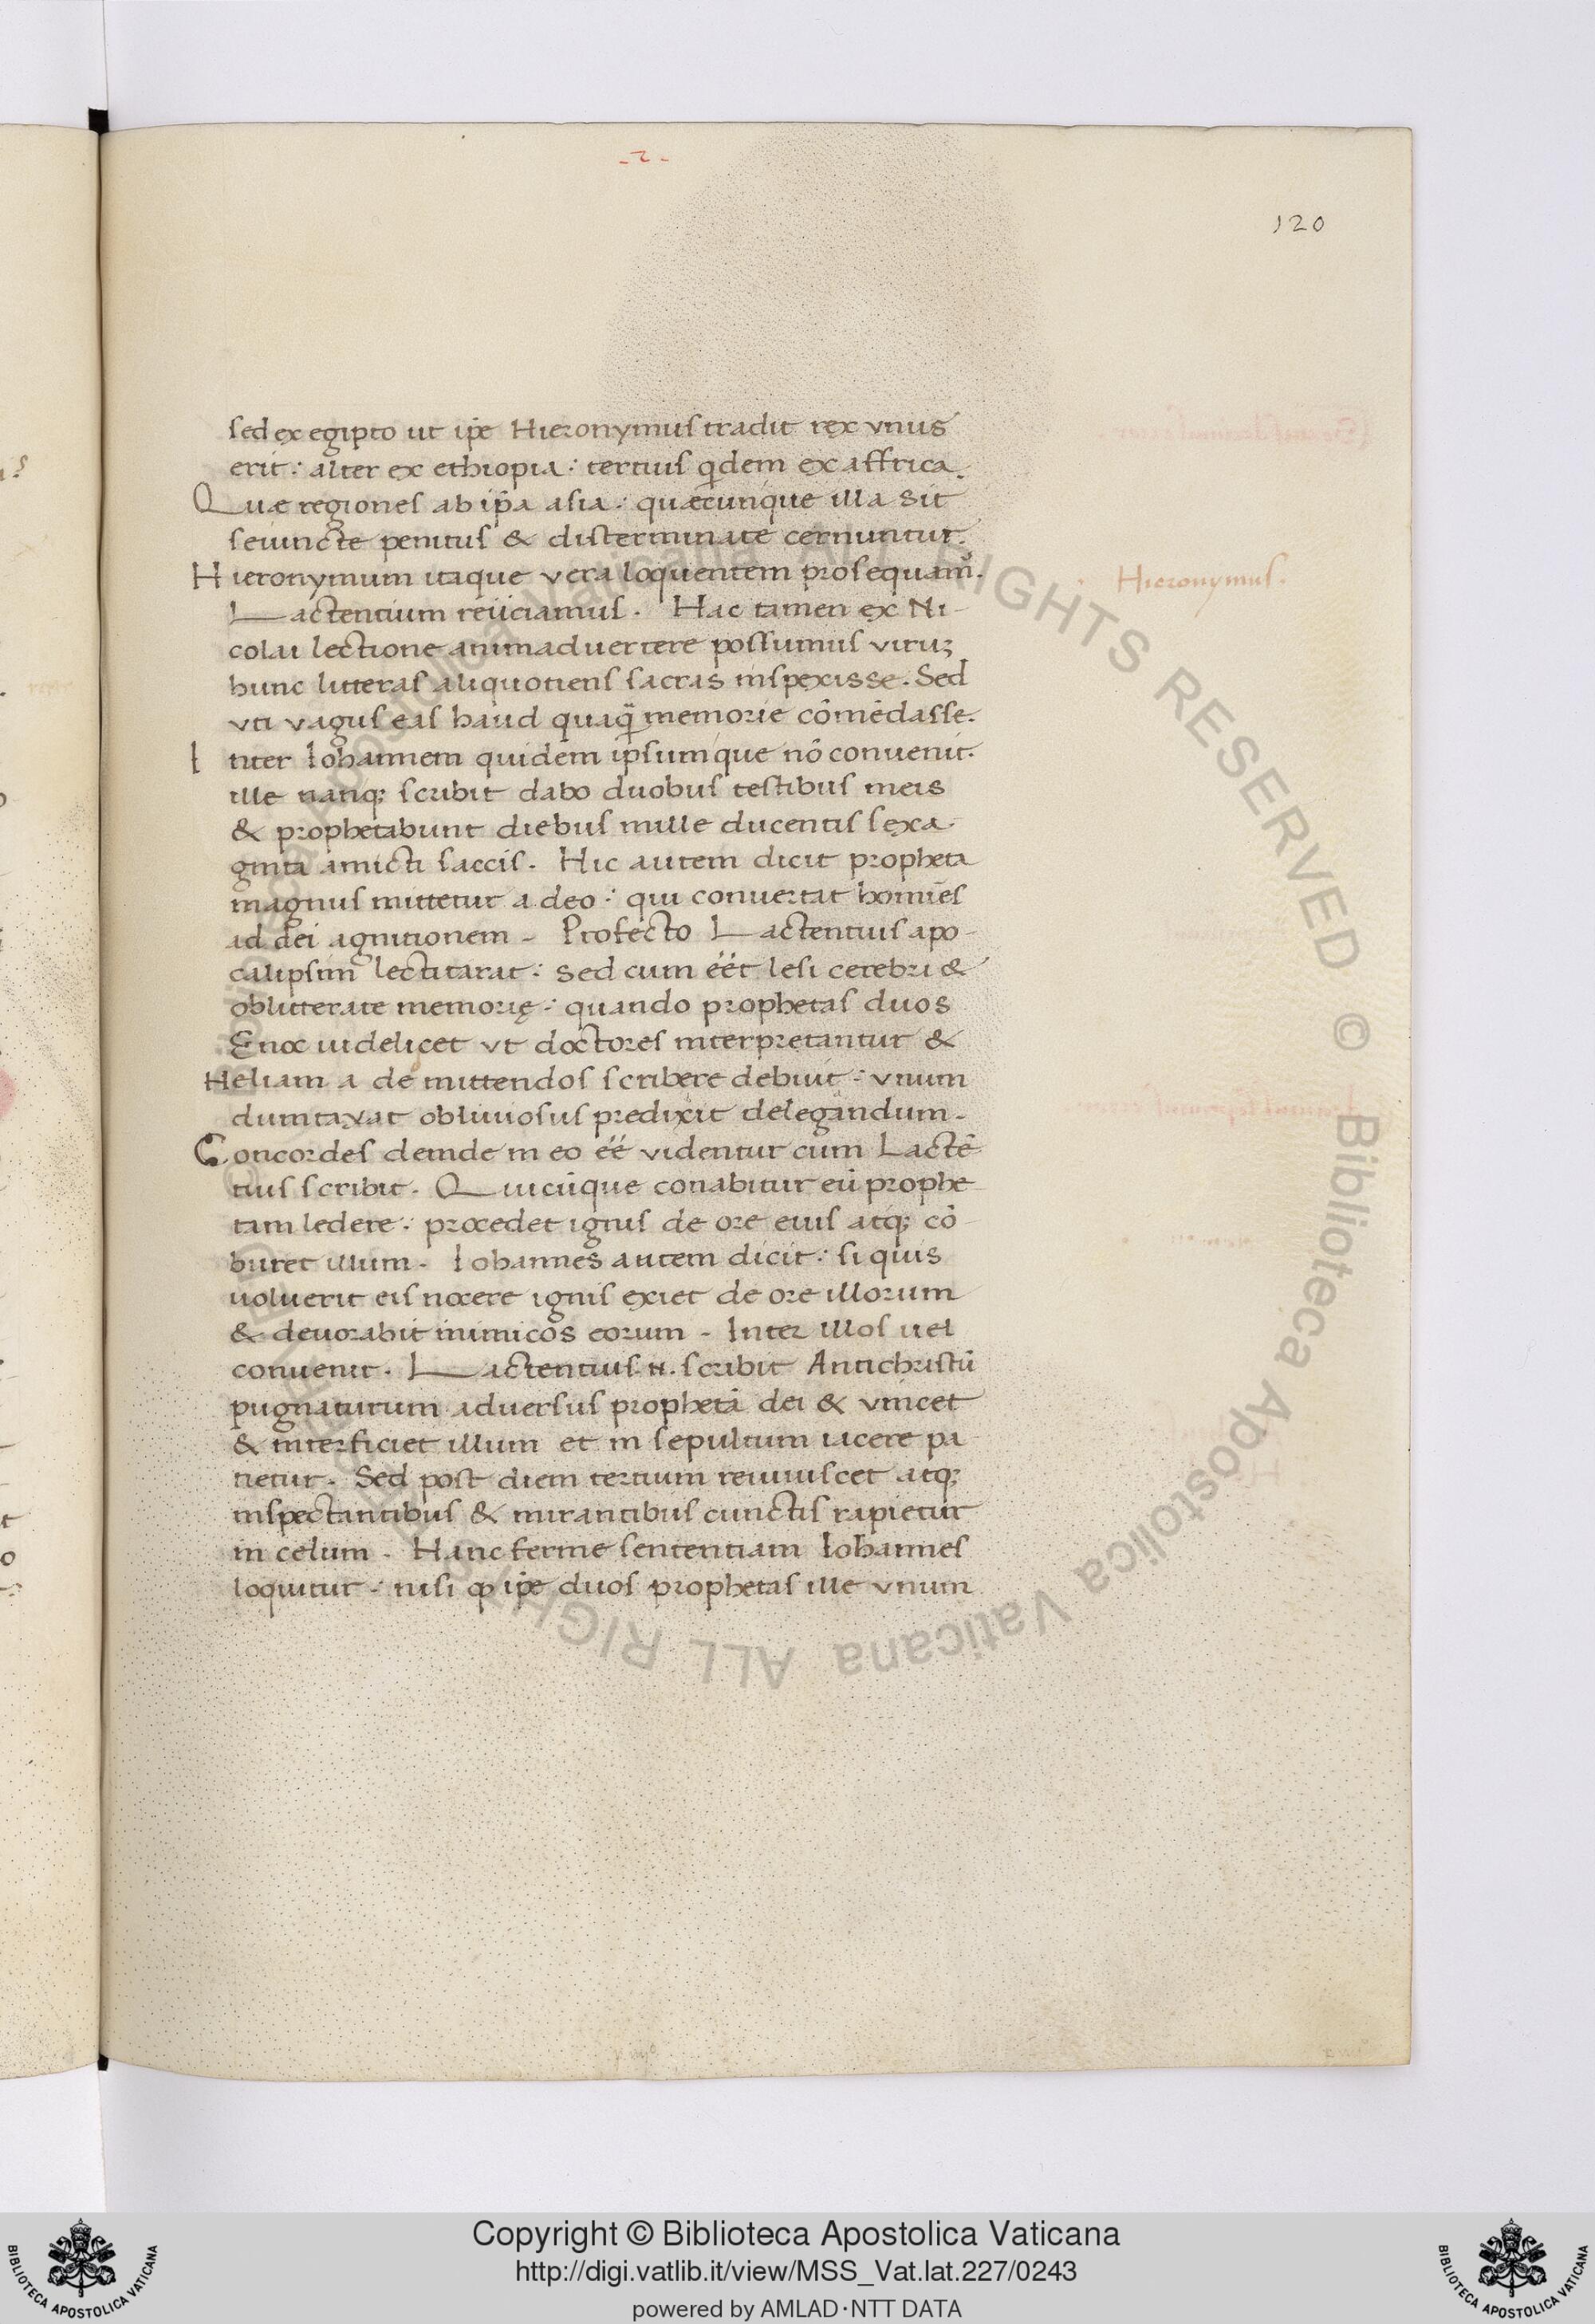 -2-
120
sed ex egipto ut ip̄e Hieronymus tradit rex vnus
erit: alter ex ethiopia: tertius q̇dem ex affrica.
Quæ regiones ab ip̄a asia: quæcunque illa sit
seiuncte penitus & disterminate cernuntur.
Hieronymum itaque vera loquentem prosequamr̃.
Lactentium reiiciamus. Hac tamen ex Ni-
colai lectione animaduertere possumus viruʒ
hunc litteras aliquotiens sacras inspexisse. Sed
vti vagus eas haud quaq̃ memorie cōmēdasse.
Inter Iohannem quidem ipsumque nō convenit.
ille nanq; scribit dabo duobus testibus meis
& prophetabunt diebus mille ducentis sexa-
ginta amicti saccis. Hic autem dicit propheta
magnus mittetur a deo: qui convertat homīes
ad dei agnitionem. Profecto Lactentius apo-
calipsim lectitarat: sed cum eēt lesi cerebri &
oblitterate memorię: quando prophetas duos
Enoc uidelicet vt doctores interpretantur &
Heliam a de mittendos scribere debuit: vnum
dumtaxat obliuiosus predixit delegandum.
Concordes deinde in eo eē videntur cum Lactē-
tius scribit. Quicūque conabitur eū prophe-
tam ledere: procedet ignis de ore eius atq; cō-
buret illum. Iohannes autem dicit: si quis
uoluerit eis nocere ignis exiet de ore illorum
& deuorabit inimicos eorum. Inter illos uel
convenit. Lactentius .n. scribit Antichristū
pugnaturum aduersus prophetā dei & vincet
& interficiet illum et in sepultum iacere pa-
tietur. Sed post diem tertium reuiuiscet atq;
inspectantibus & mirantibus cunctis rapietur
in celum. Hanc ferme sententiam Iohannes
loquitur: nisi ꝙ ip̄e duos prophetas ille vnum
Hieronymus.
Copyright © Biblioteca Apostolica Vaticana
http://digi.vatlib.it/view/MSS_Vat.lat.227/0243
powered by AMLAD·NTT DATA
BIBLIOTECA APOSTOLICA VATICANA
BIBLIOTECA APOSTOLICA VATICANA
© Biblioteca Apostolica Vaticana ALL RIGHTS RESERVED
© Biblioteca Apostolica Vaticana ALL RIGHTS RESERVED